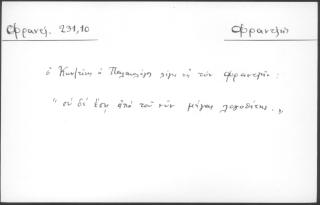 Φραντζ. 231,10 Φραντζῆς
ὁ Κων/τῖνος ὁ Παλαιολόγος λέγει εἰς τὸν Φραντζῆν :
"σὺ δὲ ἔσῃ ἀπὸ τοῦ νῦν μέγας λογοθέτης.„